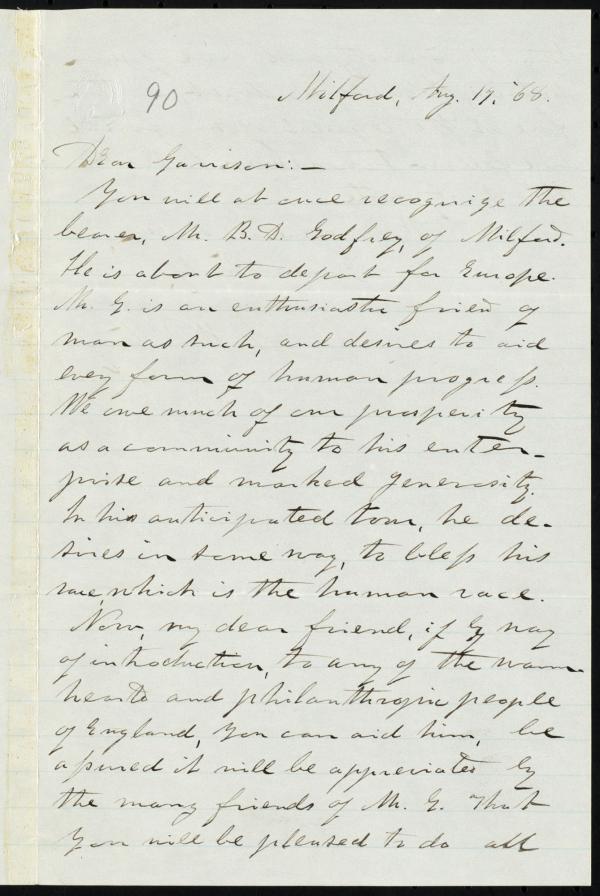 90
Milford, Aug. 17, '68.
Dear Garrison:—
You will at once recognize the
bearer, Mr. B. D. Godfrey, of Milford.
He is about to depart for Europe.
Mr. G. is an enthusiastic friend of
man as such, and desires to aid
every form of human progress.
We owe much of our prosperity
as a community to his enter-
prise and marked generosity.
In his anticipated tour, he de-
sires in some way, to bless his
race, which is the human race.
Now, my dear friend, if by way
of introduction, to any of the warm
hearts and philanthropic people
of England, you can aid him, be
assured it will be appreciated by
the many friends of Mr. G. That
you will be pleased to do all